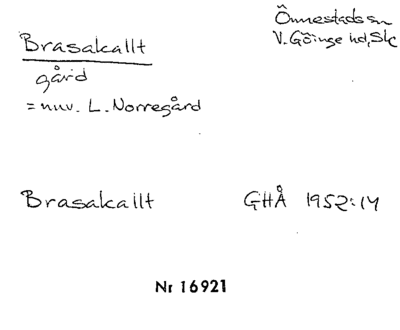 Brasakallt
Önnestads sn
V. Göinge hd, Sk
gård
= nuv. L. Norregård
Brasakallt GHÅ 1952:14
Nr 16921